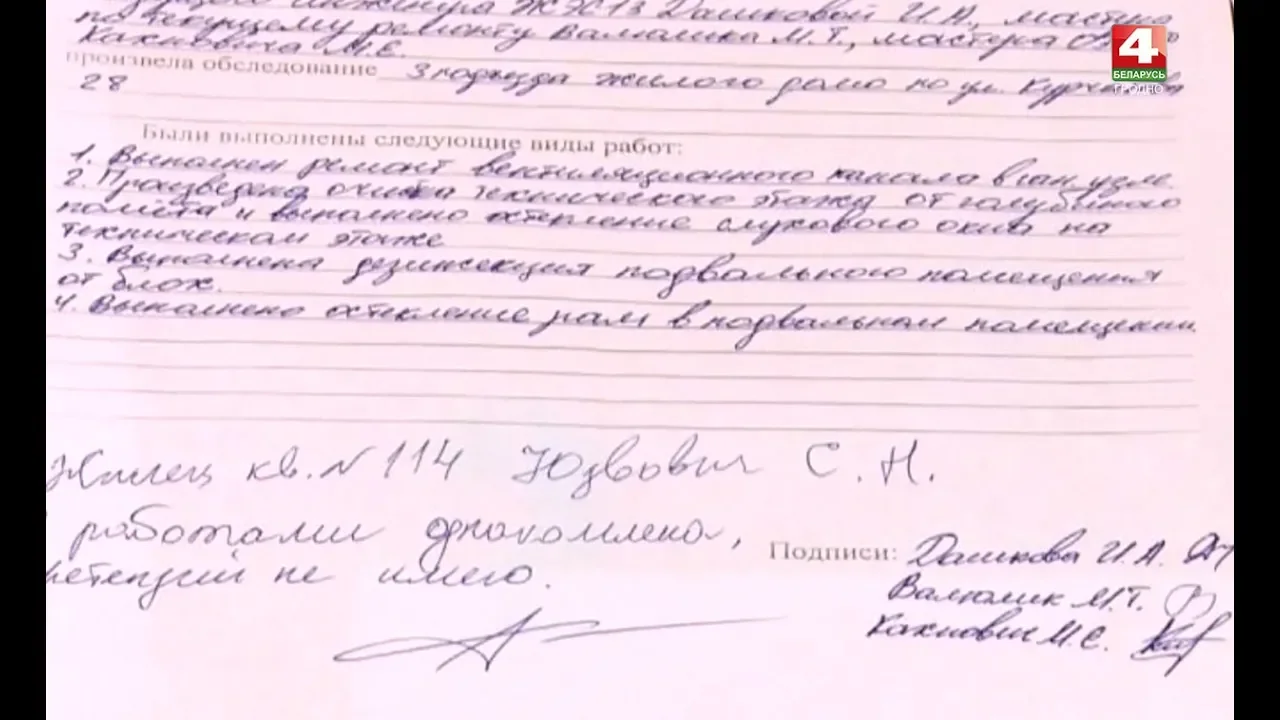 инженера ЖЭС13 Дашковой И.А., мастера
по текущему ремонту Валюмика М.Т., мастера
Кахновича М.С.
произвела обследование 3 подъезда жилого дома по ул.
28
Были выполнены следующие виды работ:
1. Выполнен ремонт вентиляционного канала в сан. узле.
2. Произведена очистка технического этажа от голубиного
помёта и выполнено остекление слухового окна на
техническом этаже
3. Выполнена дезинсекция подвального помещения
от блох.
4. Выполнено остекление рам в подвальном помещении.
Жилец кв. № 114 Юзвович С. Н.
работами ознакомлена,
претензий не имею.
Подписи: Дашкова И.А.
Валюмик М.Т.
Кахнович М.С.
4
БЕЛАРУСЬ
ГРОДНО